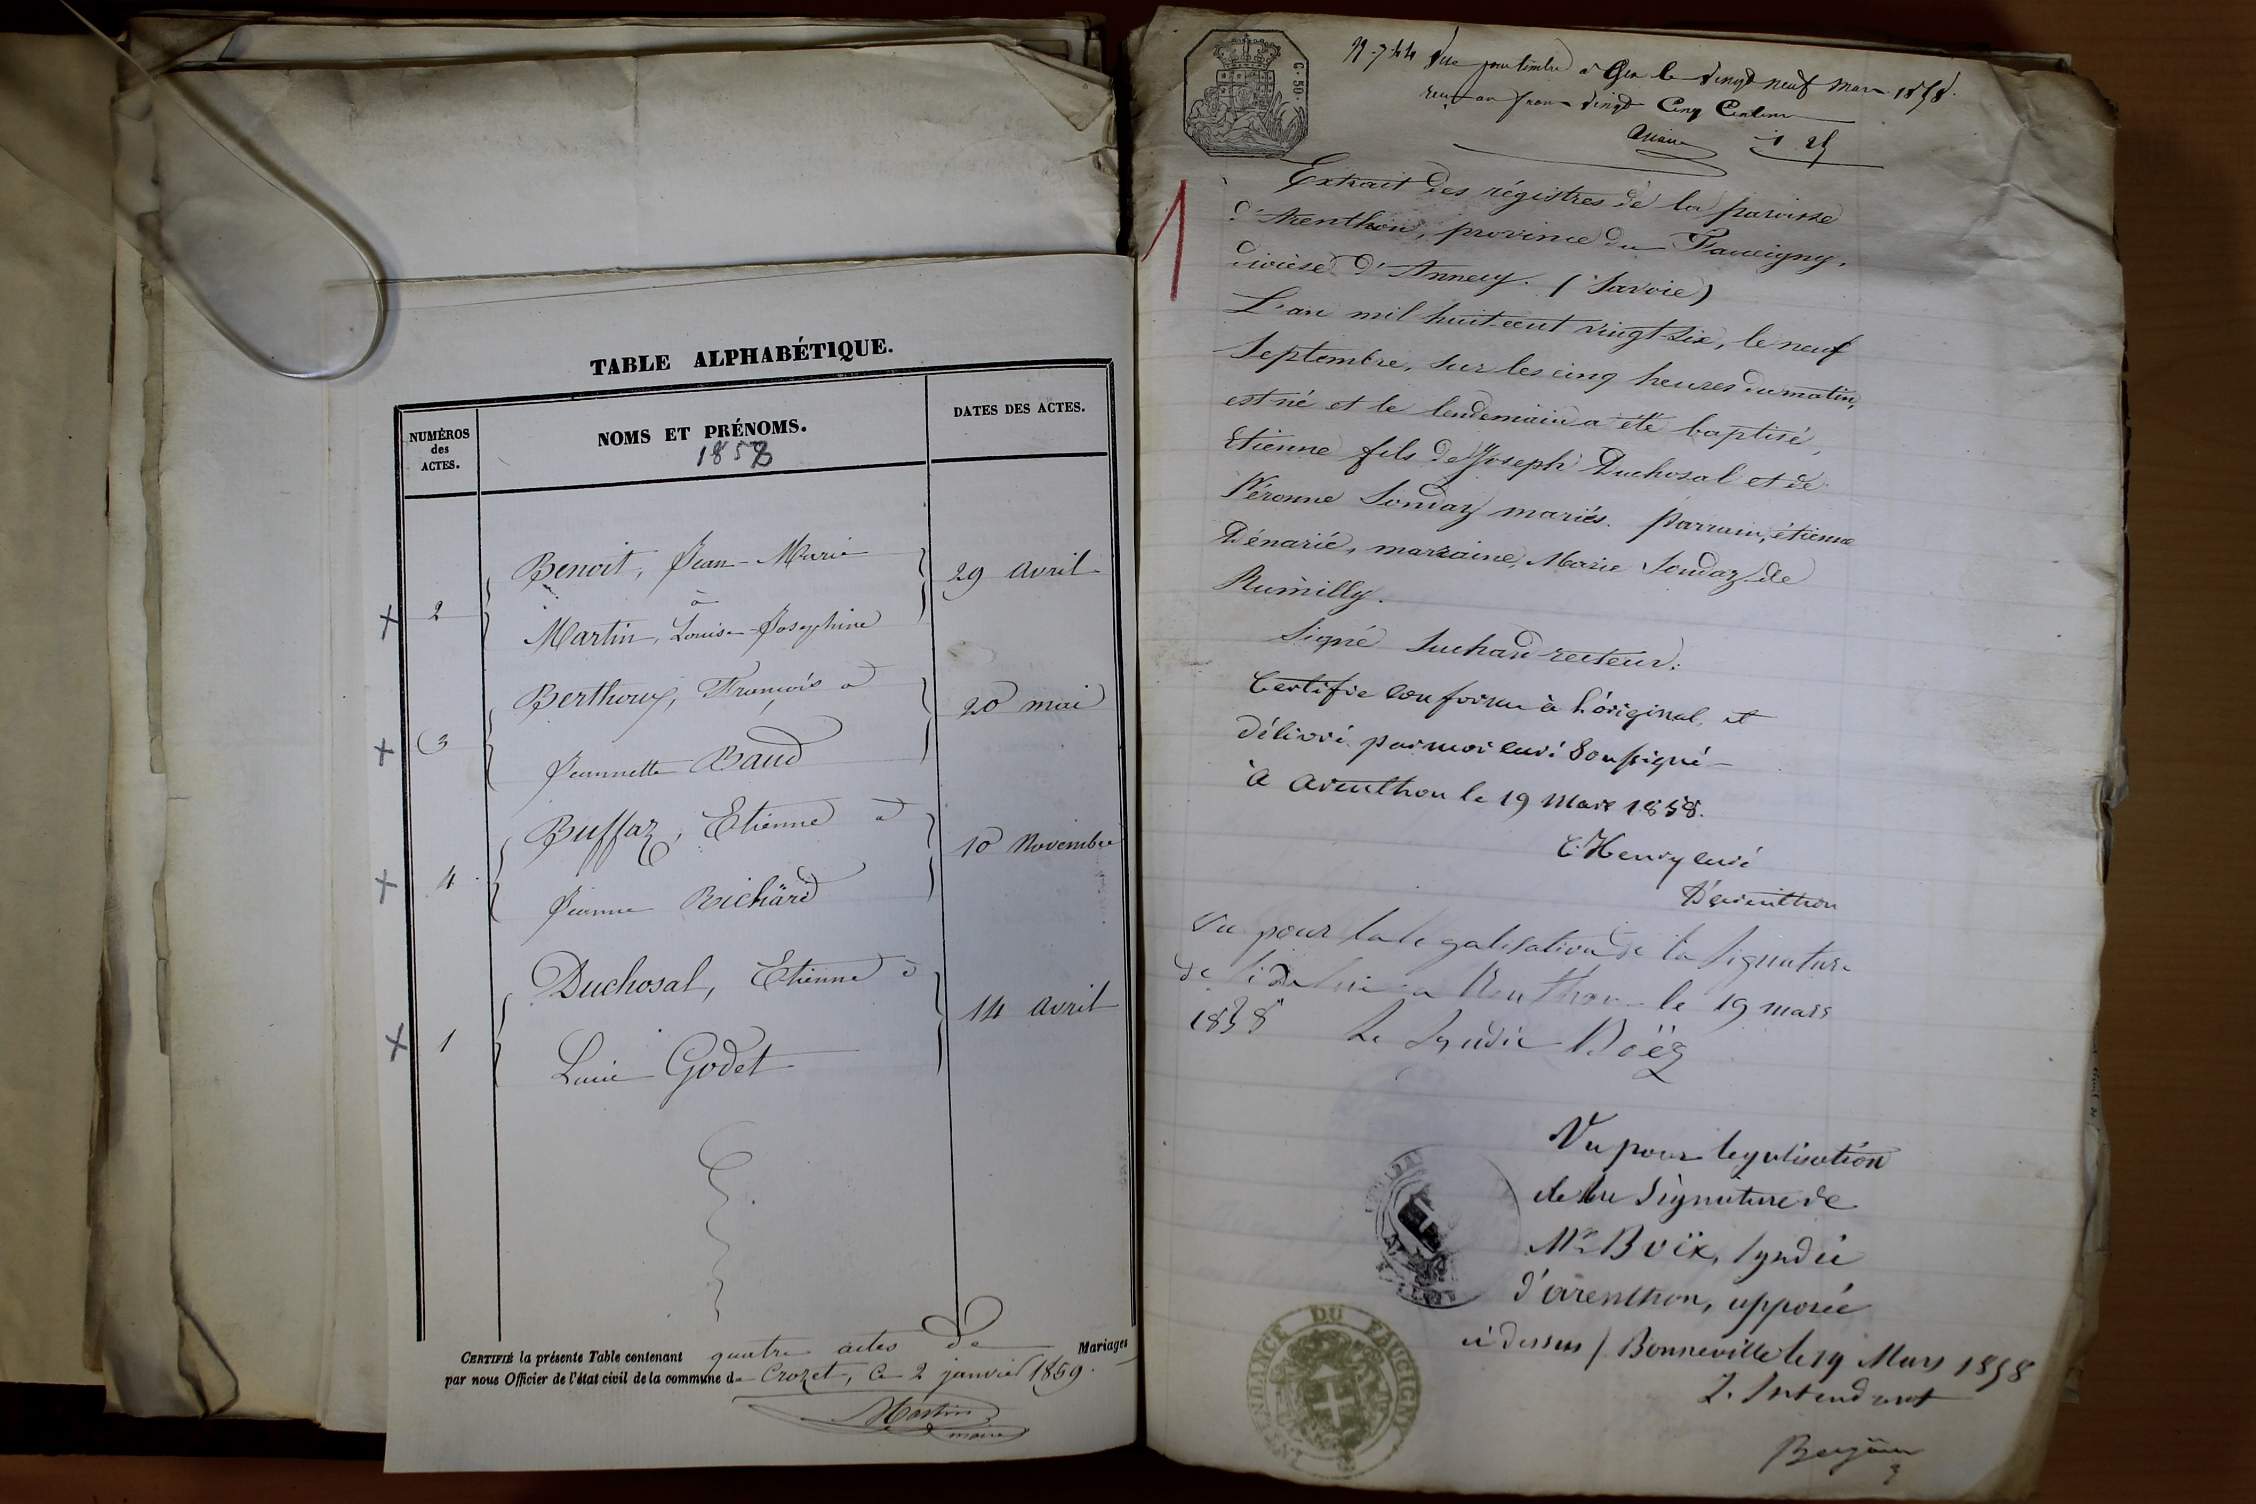 TABLE ALPHABÉTIQUE.
NUMÉROS
des
ACTES.
NOMS ET PRÉNOMS.
1858
DATES DES ACTES.
Benoit, Jean-Marie
à
29 avril
+ 2
Martin, Louise-Josephine
Berthoux, François à
20 mai
+ 3
Jeannette Baud
Buffaz, Etienne à
10 Novembre
+ 4
Jeanne Richard
Duchosal, Etienne à
14 avril
+ 1
Godet
CERTIFIÉ la présente Table contenant quatre actes de Mariages
par nous Officier de l'état civil de la commune de Crozet, ce 2 janvier 1859.
Martin
maire
C. 50.
Vu pour timbre à Gex le vingt neuf mars 1858.
reçu un franc vingt Cinq Centimes
1 25
1
Extrait des régistres de la paroisse
d'Arenthon, province du Faucigny,
diocèse d'Annecy. (Savoie)
L'an mil huit cent vingt-six, le neuf
Septembre, sur les cinq heures du matin,
est né et le lendemain a été baptisé,
Etienne fils de Joseph Duchosal et de
Péronne Soudaz mariés. parrain, étienne
Dénarié, marraine, Marie Soudaz de
Rumilly.
Signé Suchard recteur.
Certifié conforme à l'original, et
délivré par moi curé soussigné
à arenthon le 19 mars 1858.
C. Henry curé
D'arenthon
Vu pour la légalisation de la Signature
Arenthon le 19 mars
1858 Le Syndic Boëx
Vu pour legalisation
de la Signature de
Mr. Boëx, Syndic
d'arenthon, apposée
ci dessus / Bonneville le 19 Mars 1858
L'Intendant
INTENDANCE DU FAUCIGNY